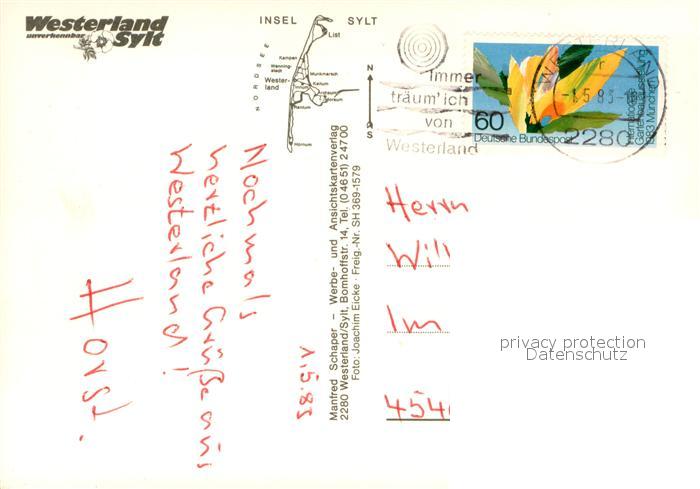 Westerland
unverkennbar
Sylt
INSEL SYLT
NORDSEE
List
Kampen
Wenning-
stedt
Wester-
land
Munkmarsch
Keitum
Morsum
Rantum
Hörnum
N
S
Immer
träum' ich
von
Westerland
-1.5.83-
2280
60
Deutsche Bundespost
Internationale
Gartenbauausstellung
1983 München
Nochmals
herzliche Grüße aus
Westerland!
Horst.
1.5.83
Manfred Schaper – Werbe- und Ansichtskartenverlag
2280 Westerland/Sylt, Bomhoffstr. 14, Tel. (0 46 51) 2 47 00
Foto: Joachim Eicke · Freig.-Nr. SH 369-1579
Herrn
Will
Im
454
privacy protection
Datenschutz